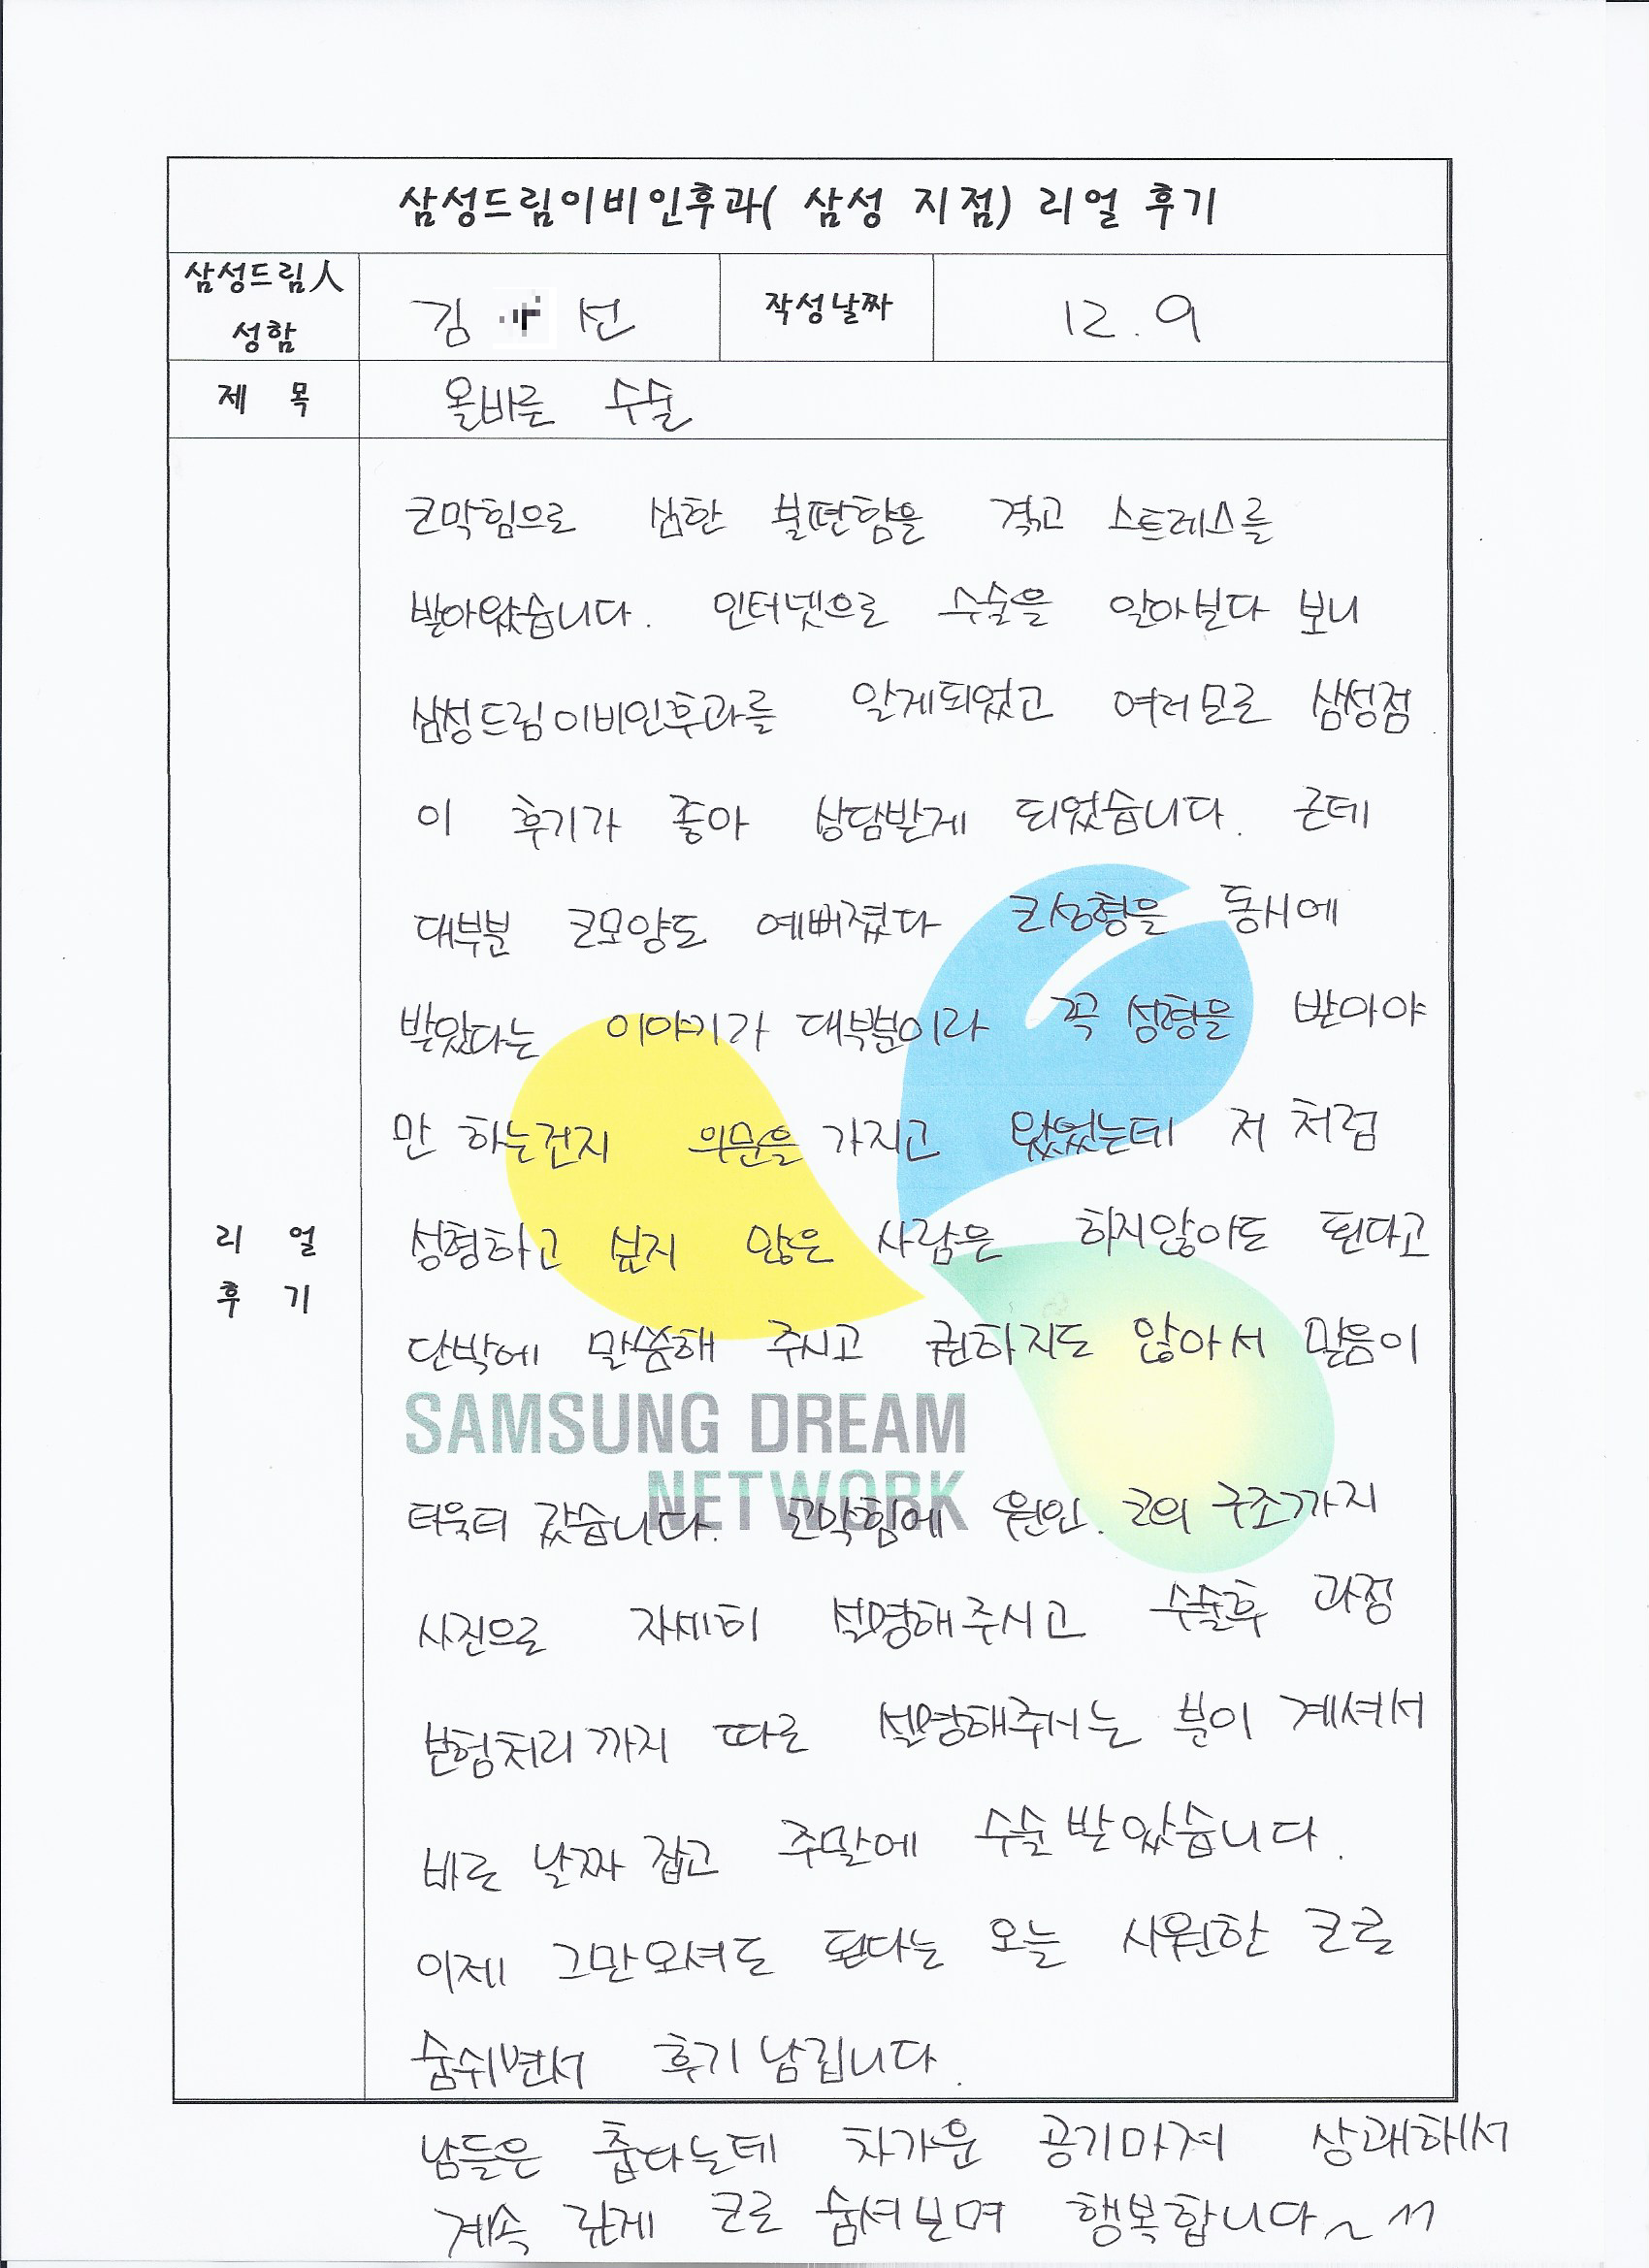 삼성드림이비인후과( 삼성 지점) 리얼 후기
삼성드림人
성함
김 선
작성날짜
12.9
제 목
올바른 수술
리 얼
후 기
코막힘으로 심한 불편함을 겪고 스트레스를
받아왔습니다. 인터넷으로 수술을 알아보다 보니
삼성드림이비인후과를 알게되었고 여러모로 삼성점
이 후기가 좋아 상담받게 되었습니다. 근데
대부분 코모양도 예뻐졌다 코성형을 동시에
받았다는 이야기가 대부분이라 꼭 성형을 받아야
만 하는건지 의문을 가지고 왔었는데 저 처럼
성형하고 싶지 않은 사람은 하지않아도 된다고
단박에 말씀해 주시고 권하지도 않아서 믿음이
SAMSUNG DREAM
NETWORK
더욱더 갔습니다. 코막힘에 원인. 코의 구조까지
사진으로 자세히 설명해주시고 수술후 과정
보험처리까지 따로 설명해주시는 분이 계셔서
바로 날짜 잡고 주말에 수술받았습니다.
이제 그만오셔도 된다는 오늘 시원한 코로
숨쉬면서 후기남깁니다.
남들은 춥다는데 차가운 공기마저 상쾌해서
계속 깊게 코로 숨셔보며 행복합니다~^^